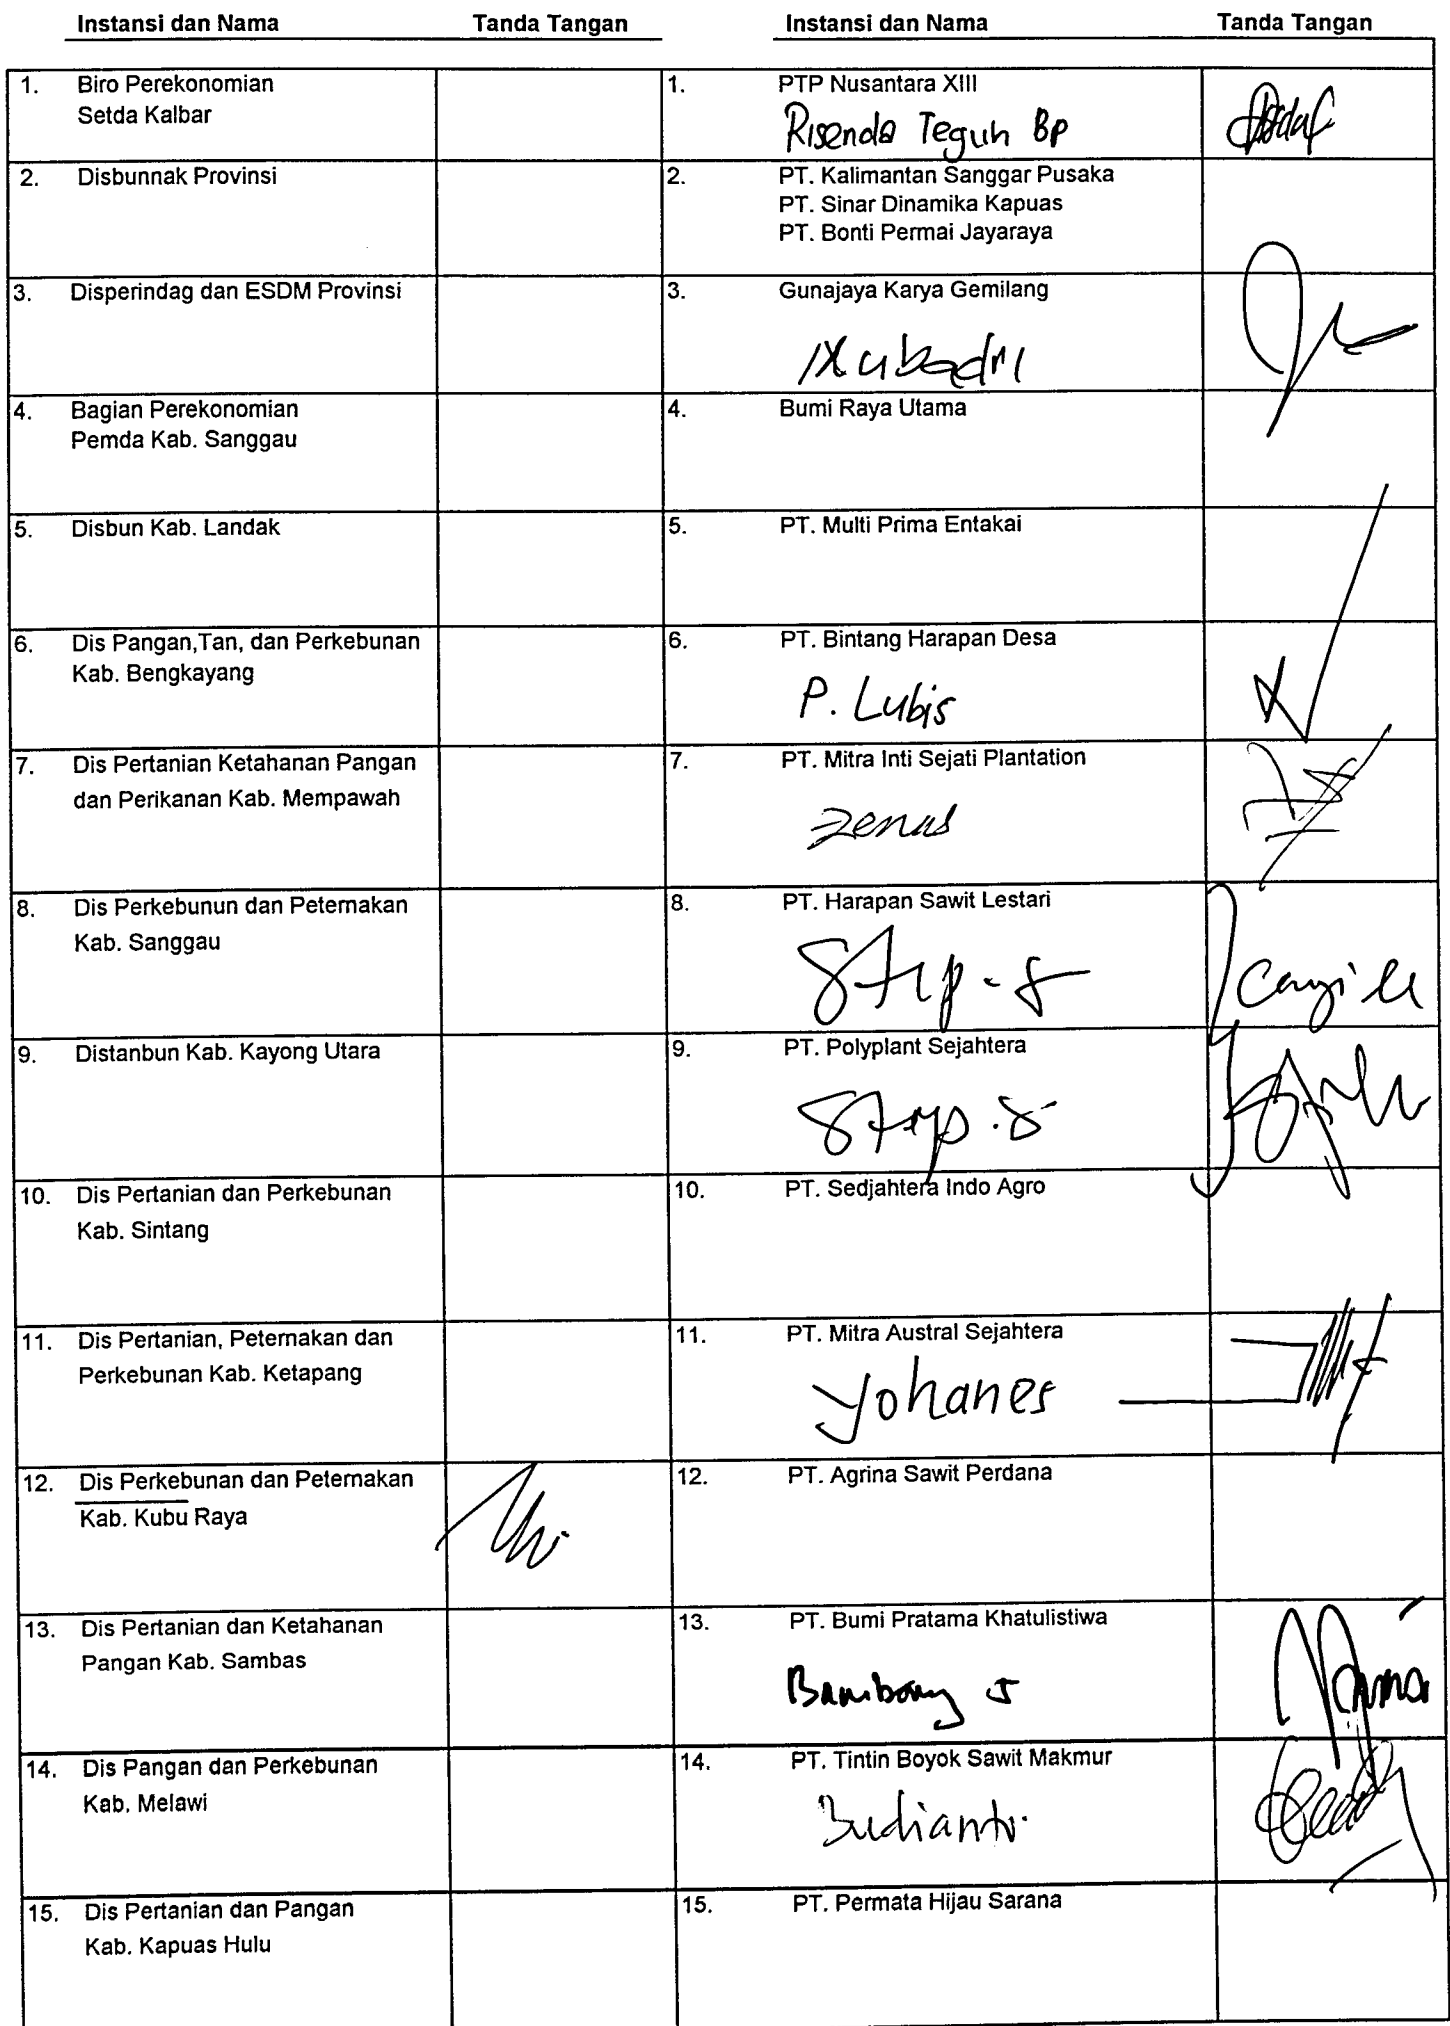 Instansi dan Nama Tanda Tangan Instansi dan Nama Tanda Tangan
1. Biro Perekonomian
Setda Kalbar
1. PTP Nusantara XIII
Risenda Teguh BP
2. Disbunnak Provinsi
2. PT. Kalimantan Sanggar Pusaka
PT. Sinar Dinamika Kapuas
PT. Bonti Permai Jayaraya
3. Disperindag dan ESDM Provinsi
3. Gunajaya Karya Gemilang
4. Bagian Perekonomian
Pemda Kab. Sanggau
4. Bumi Raya Utama
5. Disbun Kab. Landak
5. PT. Multi Prima Entakai
6. Dis Pangan,Tan, dan Perkebunan
Kab. Bengkayang
6. PT. Bintang Harapan Desa
P. Lubis
7. Dis Pertanian Ketahanan Pangan
dan Perikanan Kab. Mempawah
7. PT. Mitra Inti Sejati Plantation
Zenas
8. Dis Perkebunun dan Peternakan
Kab. Sanggau
8. PT. Harapan Sawit Lestari
9. Distanbun Kab. Kayong Utara
9. PT. Polyplant Sejahtera
10. Dis Pertanian dan Perkebunan
Kab. Sintang
10. PT. Sedjahtera Indo Agro
11. Dis Pertanian, Peternakan dan
Perkebunan Kab. Ketapang
11. PT. Mitra Austral Sejahtera
Yohanes
12. Dis Perkebunan dan Peternakan
Kab. Kubu Raya
12. PT. Agrina Sawit Perdana
13. Dis Pertanian dan Ketahanan
Pangan Kab. Sambas
13. PT. Bumi Pratama Khatulistiwa
Bambang S
14. Dis Pangan dan Perkebunan
Kab. Melawi
14. PT. Tintin Boyok Sawit Makmur
Budianto
15. Dis Pertanian dan Pangan
Kab. Kapuas Hulu
15. PT. Permata Hijau Sarana